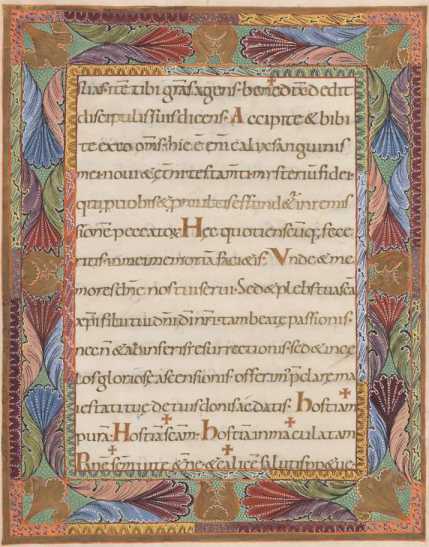 suas. ite tibi gras agens. benedixit dedit
discipulis suis dicens. Accipite & bibi
te ex eo om̄s. hic ē eni calix sanguinis
mei noui & aetni testam̄ti. mysteriū fidei
qui pro uobis & pro multis effund&ur in remis
sionē peccatorū. Hec quotienscumq; fece
ritis. in mei memoriā faci&is. Vnde & me
mores dn̄e nos tui serui. Sed & plebs tua sc̄a
xp̄i filii tui dn̄i dī nr̄i. tam beatę passionis.
nec n̄ & ab inferis resurrectionis. sed & in cę
los gloriosę ascensionis. offerim; pclarę ma
iestati tuę de tuis donis ac datis. hostiam
purā. Hostiā sc̄am. hostiā inmaculatam
Panē sc̄m uitę &ernę & calicē salutis ppetuę